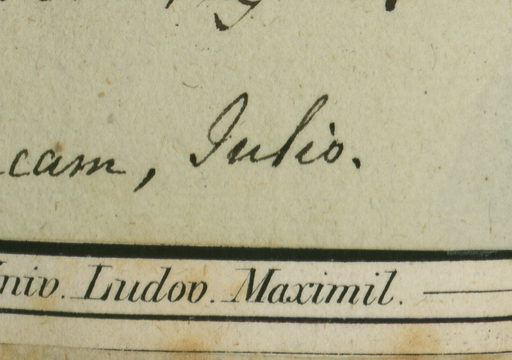 cam, Julio.
Univ. Ludov. Maximil.